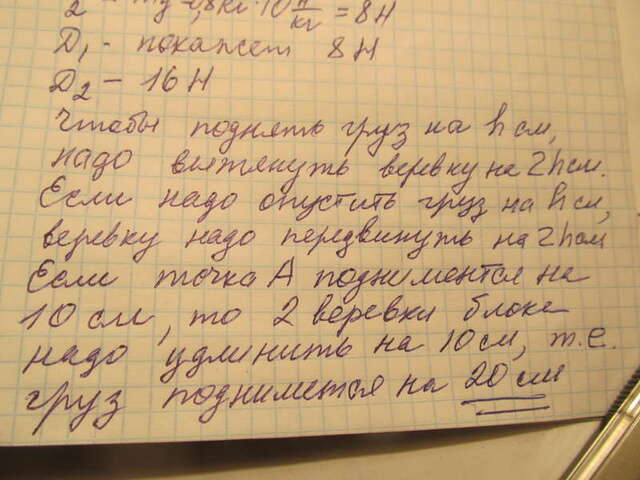 2 - mg = 0,8кг·10 Н/кг = 8Н
D₁ - покажет 8Н
D₂ - 16Н
Чтобы поднять груз на h см,
надо вытянуть веревку на 2h см.
Если надо опустить груз на h см,
веревку надо передвинуть на 2h см
Если точка А поднимется на
10 см, то 2 веревки блока
надо удлинить на 10 см, т.е.
груз поднимется на 20 см